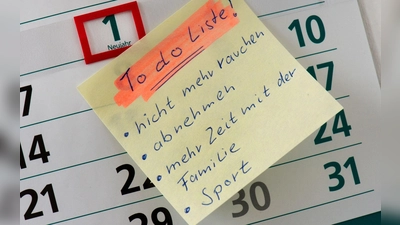 1
Neujahr
To do Liste!
• nicht mehr rauchen
• abnehmen
• mehr Zeit mit der
Familie
• Sport
3
10
17
7
14
24
21
22
23
31
28
29
30